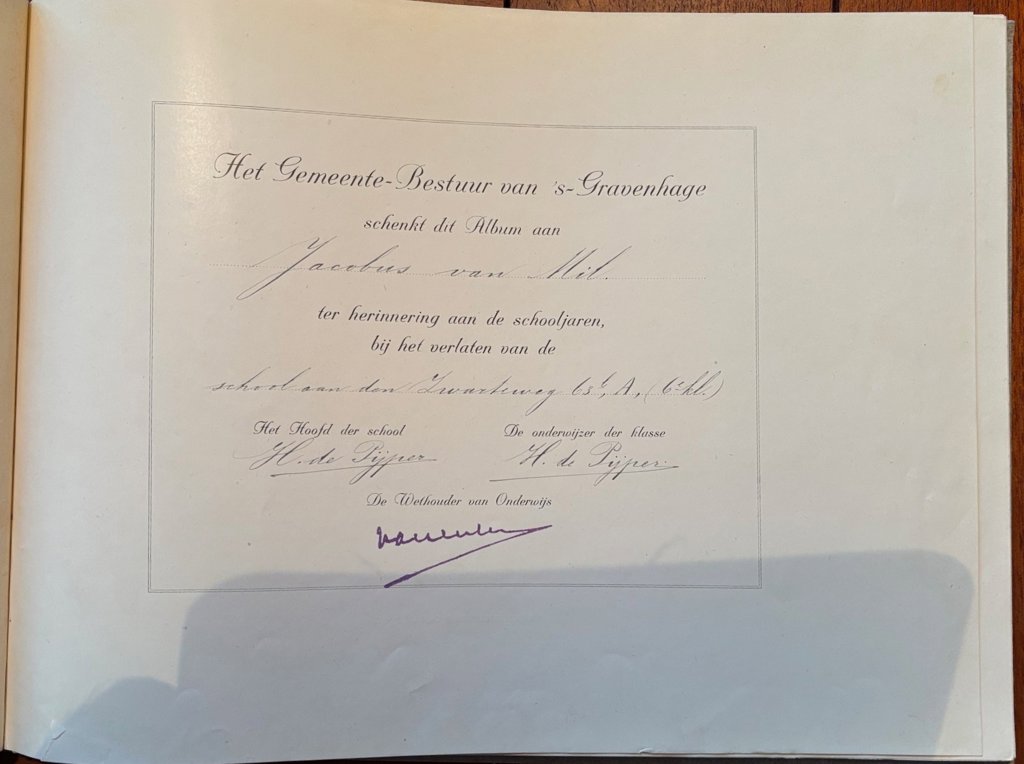 Het Gemeente-Bestuur van 's-Gravenhage
schenkt dit Album aan
Jacobus van Mil.
ter herinnering aan de schooljaren,
bij het verlaten van de
school aan den Zwarteweg 63b, A, (6e kl.)
Het Hoofd der school
De onderwijzer der klasse
H. de Pijper
H. de Pijper.
De Wethouder van Onderwijs